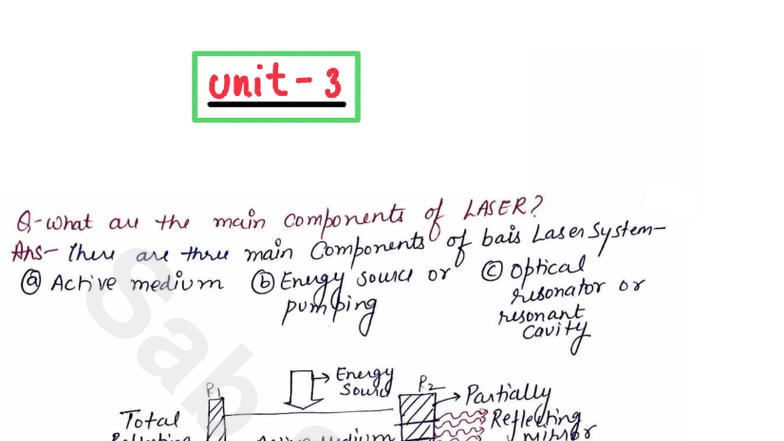 Unit - 3
Q- What are the main components of LASER?
Ans- There are three main Components of bais Laser System-
(a) Active medium (b) Energy source or (c) optical
pumping resonator or
resonant
cavity
P1 Energy P2
Source Partially
Total Reflecting
Active Medium mirror
Sab